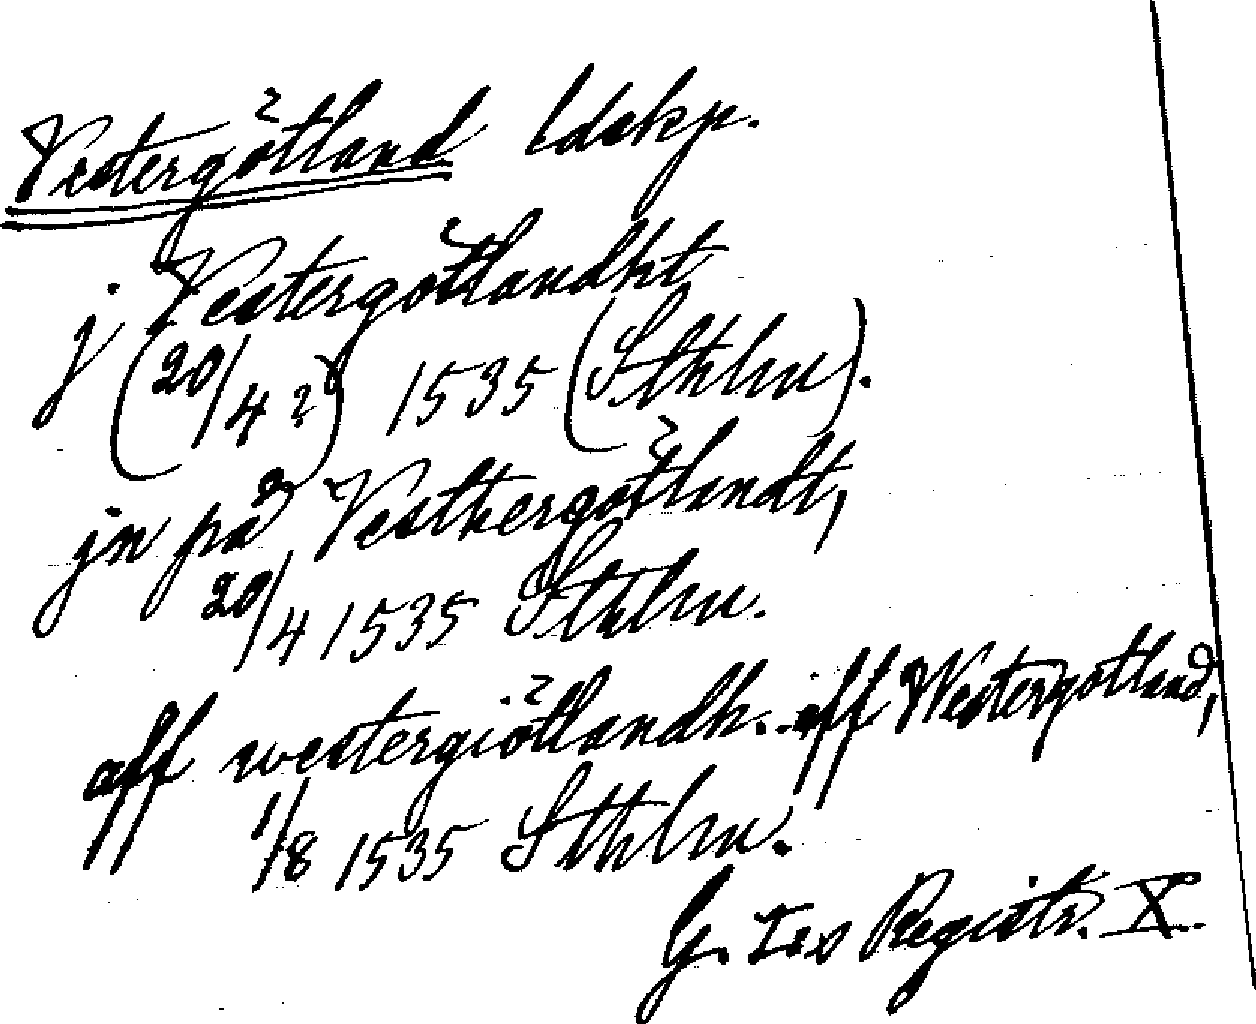 Vestergötland ldskp.
j Vestergötlandht
(20/4?) 1535 (Sthlm).
jn på Vesthergötlandt,
20/4 1535 Sthlm.
aff westergiötlandh. iff Westergotland,
1/8 1535 Sthlm.
G. I:s Registr. X.